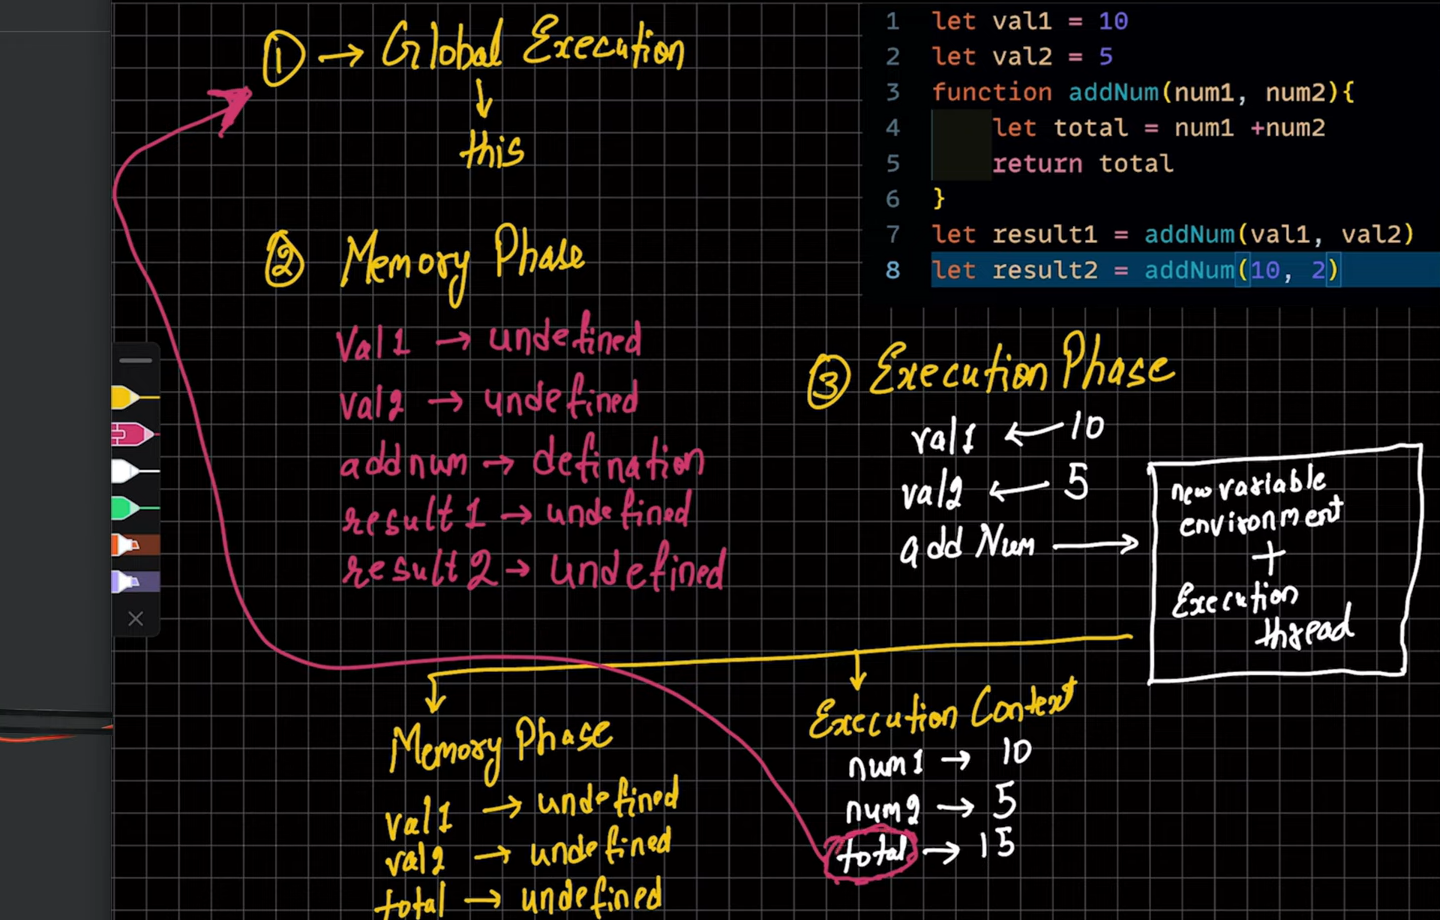 ① → Global Execution
↓
this
② Memory Phase
val1 → undefined
val2 → undefined
addnum → defination
result1 → undefined
result2 → undefined
1 let val1 = 10
2 let val2 = 5
3 function addNum(num1, num2){
4 let total = num1 +num2
5 return total
6 }
7 let result1 = addNum(val1, val2)
8 let result2 = addNum(10, 2)
③ Execution Phase
val1 ← 10
val2 ← 5
add Num →
new variable
environment
+
Execution
thread
Memory Phase
val1 → undefined
val2 → undefined
total → undefined
Execution Context
num1 → 10
num2 → 5
total → 15